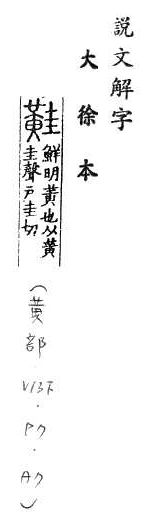 説文解字
大徐本
黊 鮮明黃也从黃
圭聲戶圭切
(黃部.V13下.P7.A7)